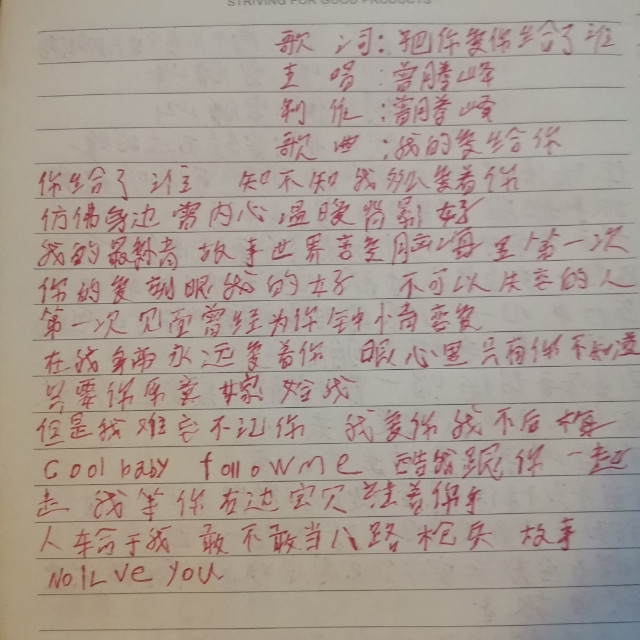 STRIVING FOR GOOD PRODUCTS
歌 词：把你爱你给了谁
主 唱：曾腾峰
制 作：曾腾峰
歌 曲：我的爱给你
你给了谁 知不知我多么爱着你
仿佛身边 需内心温暖 特别好
我的最 故事世界恋爱脑海里第一次
你的爱刻眼我的好 不可以失恋的人
第一次见面曾经为你 钟情恋爱
在我身旁永远爱着你 眼心里只有你不知道
只要你原意 嫁给我
但是我难忘不记你 我爱你我不后悔
Cool baby followme 酷 跟你一起
走 我牵你右边宝贝 着你手
人 命于我 敢不敢当八路枪兵 故事
NO.1LVe you